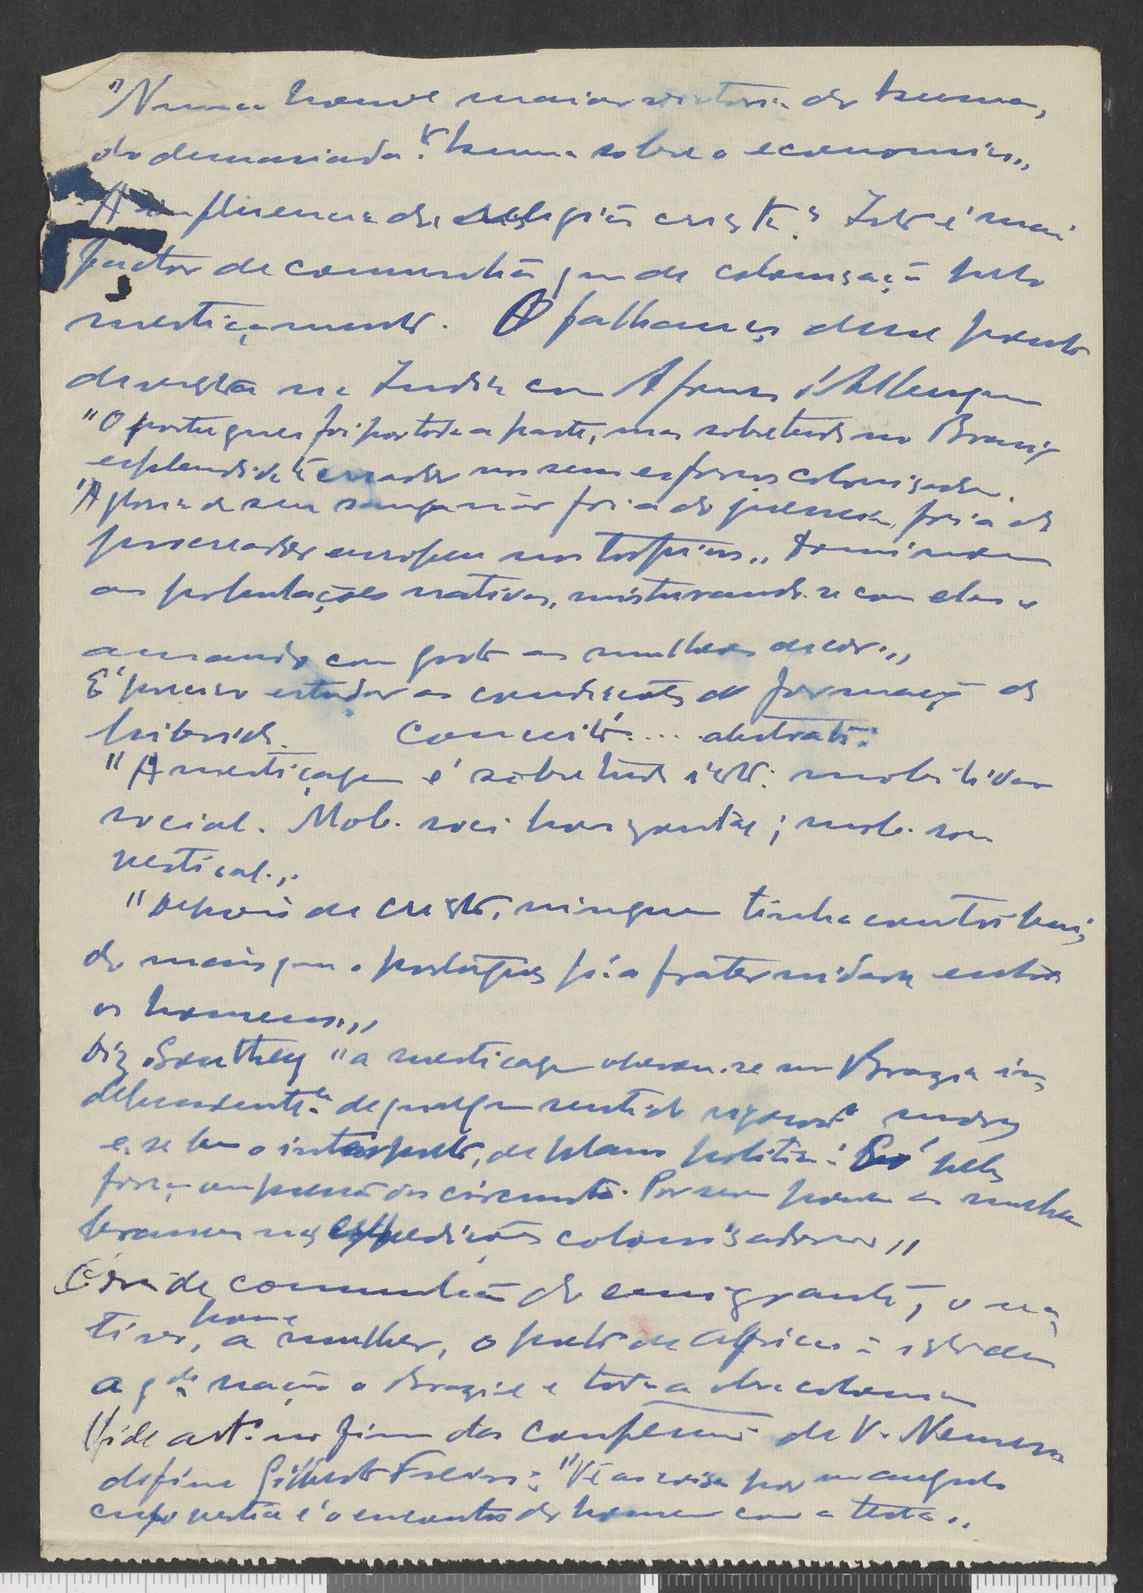 "Nunca houve maior victoria do humano,
do demasiado humano sobre o economico„
A influencia da religião cristã? Isto é mais
factor de comunhão que de colonisação pelo
mestiçamento. O falhanço desse ponto
de vista na India com Afonso d'Albuquerque
"O portuguez foi por toda a parte, mas sobretudo no Brasil
esplendidamte creador nos seus esforços colonisadores.
"A gloria de seu sangue não foi a do guerreiro, foi a do
procreador europeu nos tropicos„ Dominaram
as populações nativas, misturando-se com elas e
amando com gosto as mulheres de cor.„
É preciso estudar as condições de formação do
hibrido. Conceito... abstrato:
"A mestiçagem é sobretudo isto: mobilidade
social. Mob. soci horizontal; mob. soci
vertical.„
"Depois de Cristo, ninguem tinha contribui
do mais que o portugues pª a fraternidade entre
os homens„
Diz Southey "a mestiçagem operou-se no Brazil in
dependentte de qualquer sentido moral
e, se bem o interpreto, de plano politico. Só pela
força da circumsta. Por serem poucas as mulheres
brancas nas expedições colonisadoras„
de comunhão do emigrante, o na
tivo, home a mulher, o preto de Africa isto deu
a gde nação o Brazil e toda a obra colonial
Vide artº no fim das conferencias de V. Nemesio
define Gilberto Freire: "Vê as coisas por um angulo
cujo vertice é o encontro do homem com a terra„